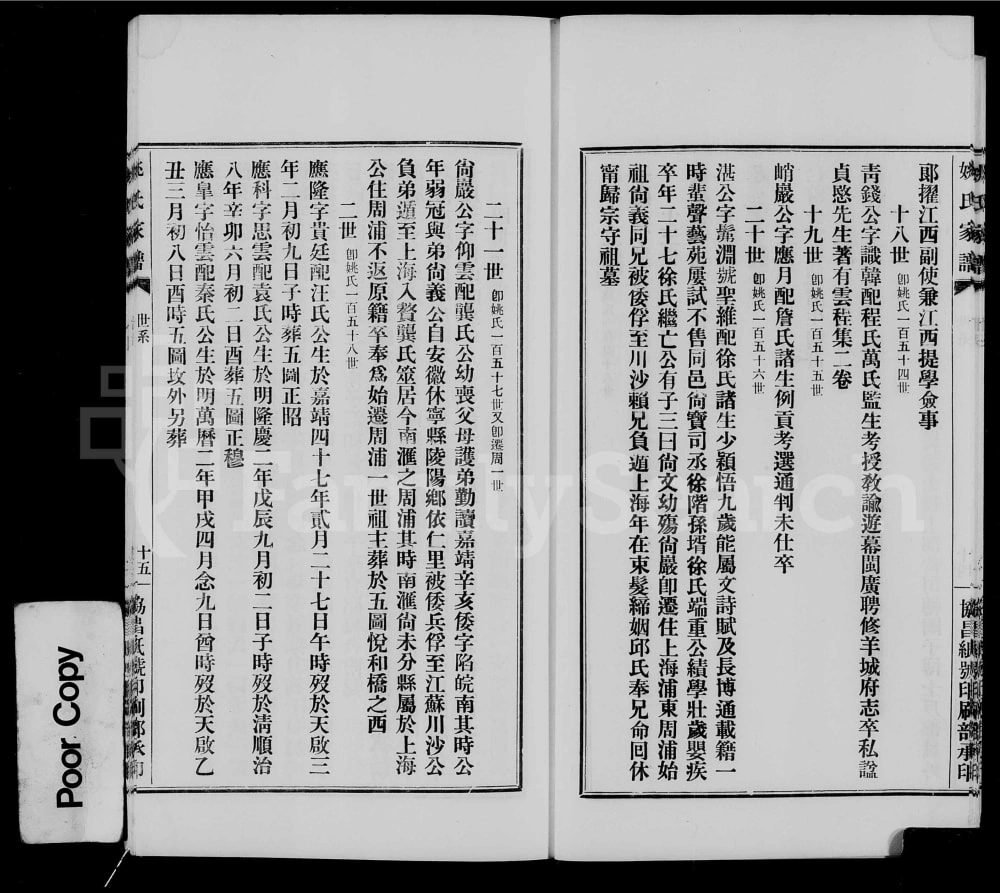 姚氏家譜
協昌紙號印刷部承印
郞擢江西副使兼江西提學僉事
十八世 卽姚氏一百五十四世
靑錢公字識韓配程氏萬氏監生考授敎諭遊幕閩廣聘修羊城府志卒私諡
貞愍先生著有雲程集二卷
十九世 卽姚氏一百五十五世
峭巖公字應月配詹氏諸生例貢考選通判未仕卒
二十世 卽姚氏一百五十六世
湛公字髴淵號聖維配徐氏諸生少穎悟九歲能屬文詩賦及長博通載籍一
時蜚聲藝苑屢試不售同邑尙寶司丞徐階孫壻徐氏端重公績學壯歲嬰疾
卒年二十七徐氏繼亡公有子三曰尙文幼殤尙巖卽遷住上海浦東周浦始
祖尙義同兄被倭俘至川沙賴兄負遁上海年在束髮締姻邱氏奉兄命回休
甯歸宗守祖墓
二十一世 卽姚氏一百五十七世又卽遷周一世
尙巖公字仰雲配龔氏公幼喪父母護弟勤讀嘉靖辛亥倭字陷皖南其時公
年弱冠與弟尙義公自安徽休寧縣陵陽鄕依仁里被倭兵俘至江蘇川沙公
負弟遁至上海入贅龔氏筮居今南滙之周浦其時南滙尙未分縣屬於上海
公住周浦不返原籍卒奉爲始遷周浦一世祖主葬於五圖悅和橋之西
二世 卽姚氏一百五十八世
應隆字貴廷配汪氏公生於嘉靖四十七年貳月二十七日午時歿於天啟三
年二月初九日子時葬五圖正昭
應科字思雲配袁氏公生於明隆慶二年戊辰九月初二日子時歿於淸順治
八年辛卯六月初二日酉葬五圖正穆
應皐字怡雲配秦氏公生於明萬曆二年甲戌四月念九日酉時歿於天啟乙
丑三月初八日酉時五圖坟外另葬
姚氏家譜
世系
十五
協昌紙號印刷部承印
Poor Copy
FamilySearch